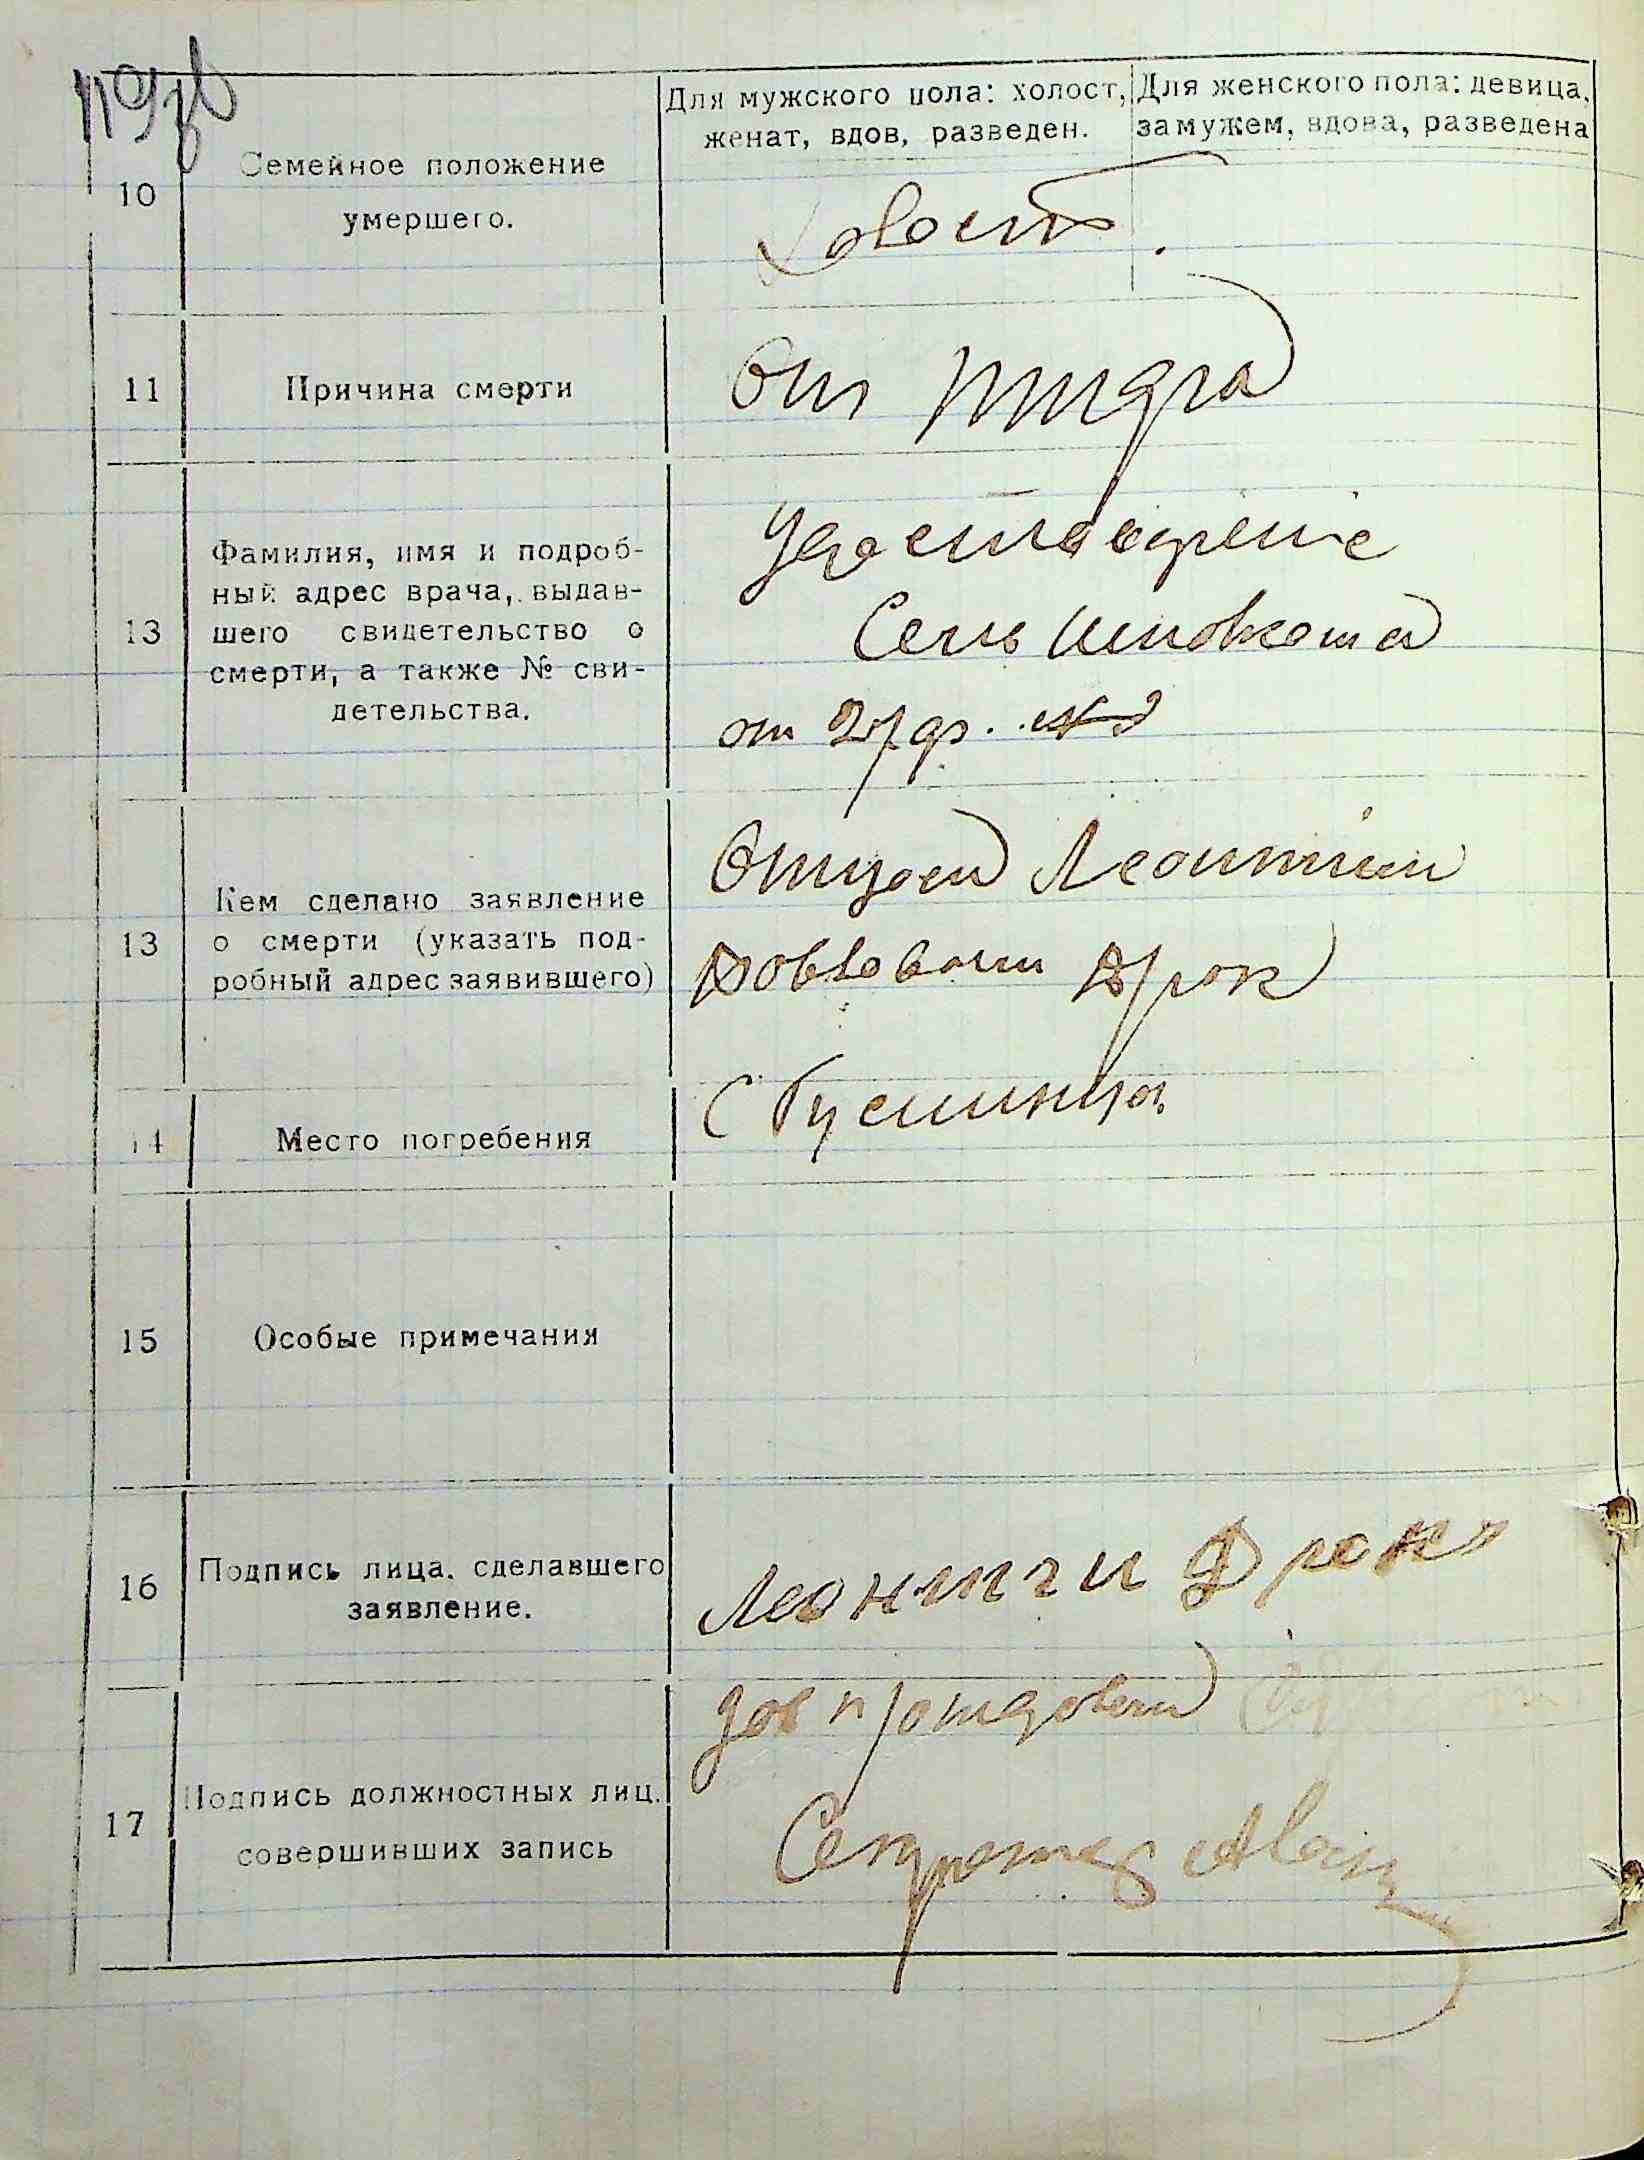 119зв
Для мужского пола: холост,
женат, вдов, разведен.
Для женского пола: девица,
замужем, вдова, разведена
10
Семейное положение
умершего.
холост.
11
Причина смерти
От тифа
13
Фамилия, имя и подроб-
ный адрес врача, выдав-
шего свидетельство о
смерти, а также № сви-
детельства.
Удостоверение
от 27
13
Кем сделано заявление
о смерти (указать под-
робный адрес заявившего)
Отцом Леонтием
Дрок
14
Место погребения
С
15
Особые примечания
16
Подпись лица. сделавшего
заявление.
Леонтти Дрокъ
17
Подпись должностных лиц.
совершивших запись
Зав
Секретар